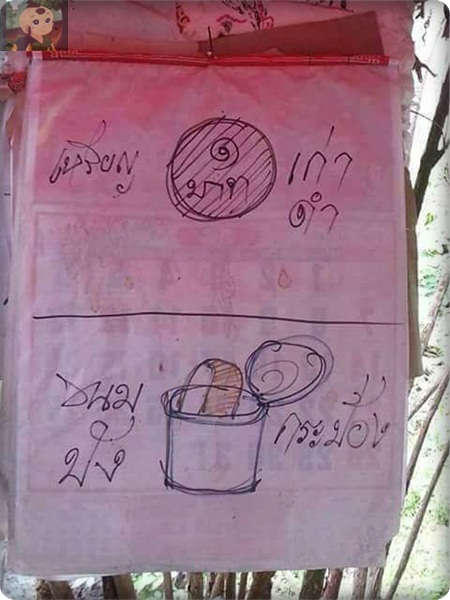 เหรียญ ๑ เก่า
บาท ดำ
ขนม กระป๋อง
ปัง